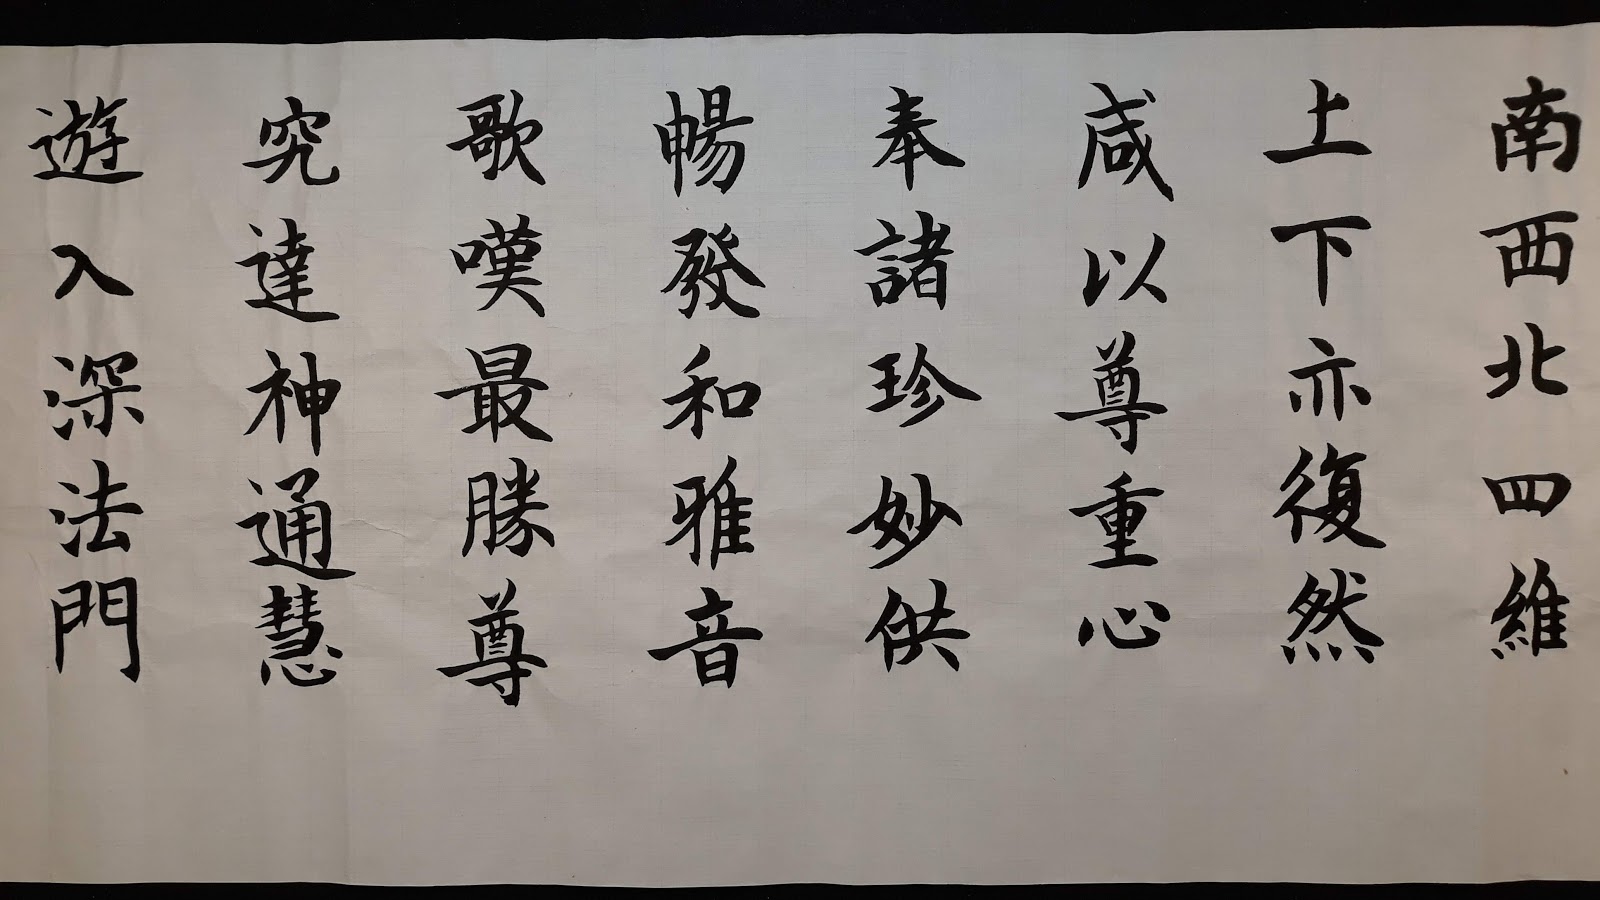 南西北四維
上下亦復然
咸以尊重心
奉諸珍妙供
暢發和雅音
歌嘆最勝尊
究達神通慧
遊入深法門